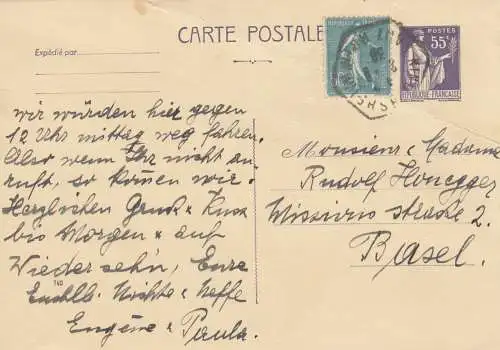 CARTE POSTALE
Expédié par
POSTES
55c
RÉPUBLIQUE-FRANÇAISE
wir würden hier gegen
12 Uhr mittag weg fahren.
Also wenn Ihr nicht an-
ruft, so kommen wir.
Herzlichen Gruss & Kuss
bis Morgen & auf
Wiedersehn, Eure
Nichte & Neffe
Eugène & Paula.
140
Monsieur & Madame
Rudolf Honegger
Missionsstrasse 2.
Basel.